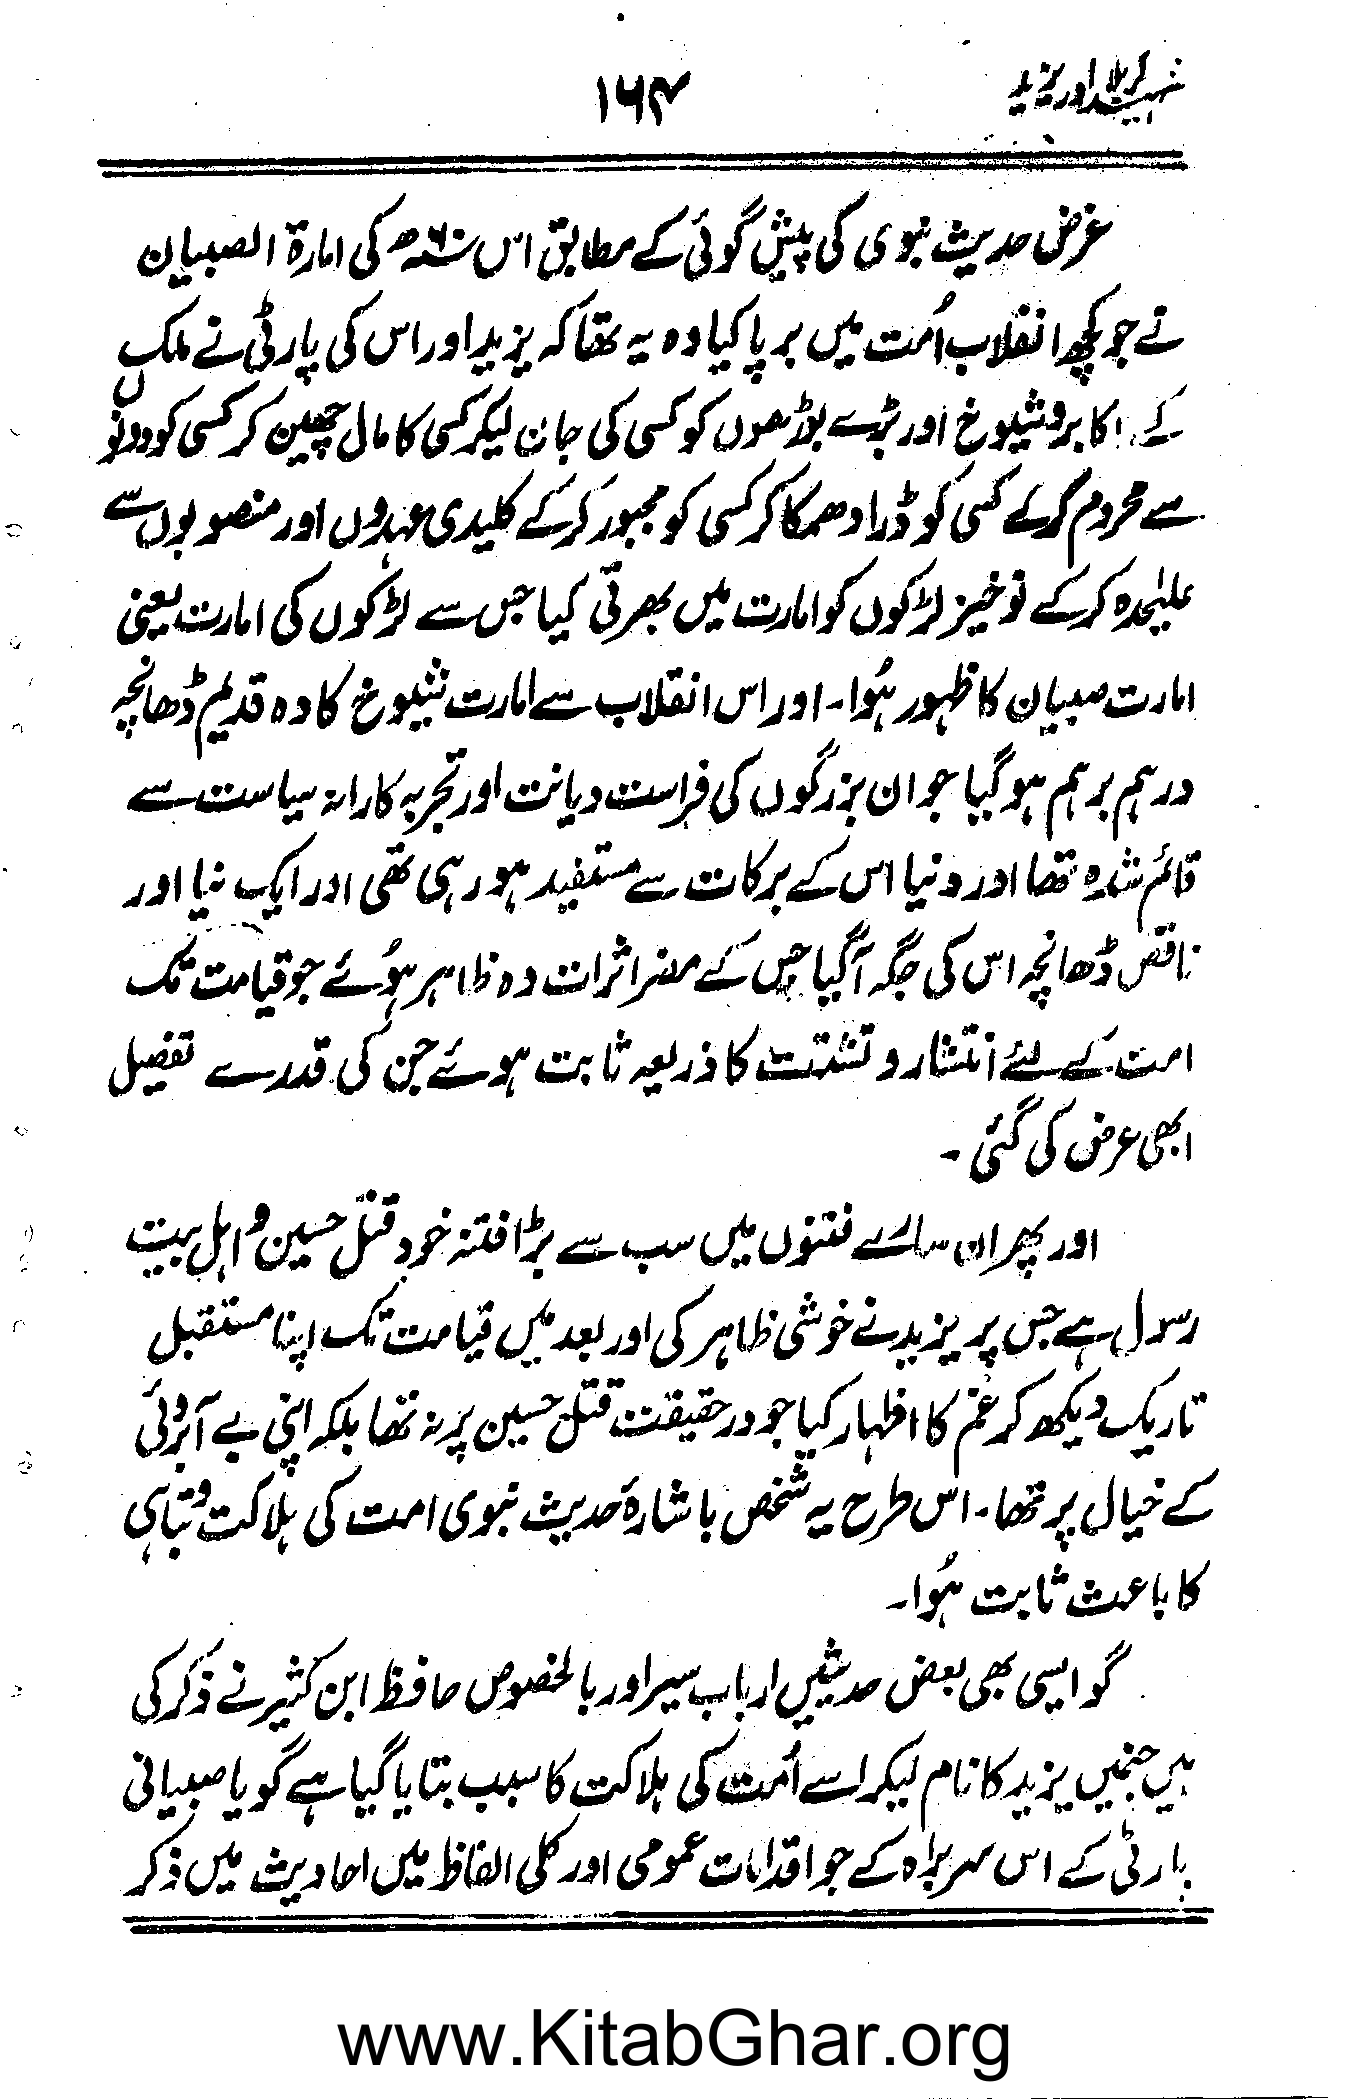 شہید کربلا اور یزید
۱۶۴
غرض حدیث نبوی کی پیش گوئی کے مطابق اس ۶۰ھ کی امارۃ الصبیان
نے جو کچھ انقلاب اُمت میں برپا کیا وہ یہ تھا کہ یزید اور اس کی پارٹی نے ملک
کے اکابر و شیوخ اور بڑے بوڑھوں کو کسی کی جان لیکر کسی کا مال چھین کر کسی کو دونوں
سے محروم کر کے کسی کو ڈرا دھمکا کر کسی کو مجبور کر کے کلیدی عہدوں اور منصوبوں سے
علیٰحدہ کر کے نوخیز لڑکوں کو امارت میں بھرتی کیا جس سے لڑکوں کی امارت یعنی
امارت صبیان کا ظہور ہُوا۔ اور اس انقلاب سے امارت شیوخ کا وہ قدیم ڈھانچہ
درہم برہم ہو گیا جو ان بزرگوں کی فراست دیانت اور تجربہ کارانہ سیاست سے
قائم شدہ تھا اور دنیا اس کے برکات سے مستفید ہو رہی تھی اور ایک نیا اور
ناقص ڈھانچہ اس کی جگہ آ گیا جس کے مضر اثرات وہ ظاہر ہوُئے جو قیامت تک
امت کے لئے انتشار و تشتت کا ذریعہ ثابت ہوئے جن کی قدرے تفصیل
ابھی عرض کی گئی ۔
اور پھر ان سارے فتنوں میں سب سے بڑا فتنہ خود قتل حسین و اہل بیت
رسول ہے جس پر یزید نے خوشی ظاہر کی اور بعد میں قیامت تک اپنا مستقبل
تاریک دیکھ کر غم کا اظہار کیا جو در حقیقت قتل حسین پر نہ تھا بلکہ اپنی بے آبروئی
کے خیال پر تھا۔ اس طرح یہ شخص باشارۂ حدیث نبوی امت کی ہلاکت و تباہی
کا باعث ثابت ہُوا۔
گو ایسی بھی بعض حدیثیں ارباب سیر اور بالخصوص حافظ ابن کثیر نے ذکر کی
ہیں جنمیں یزید کا نام لیکر اسے اُمت کی ہلاکت کا سبب بتایا گیا ہے گویا صبیانی
پارٹی کے اس سربراہ کے جو اقدامات عمومی اور کلی الفاظ میں احادیث میں ذکر
www.KitabGhar.org